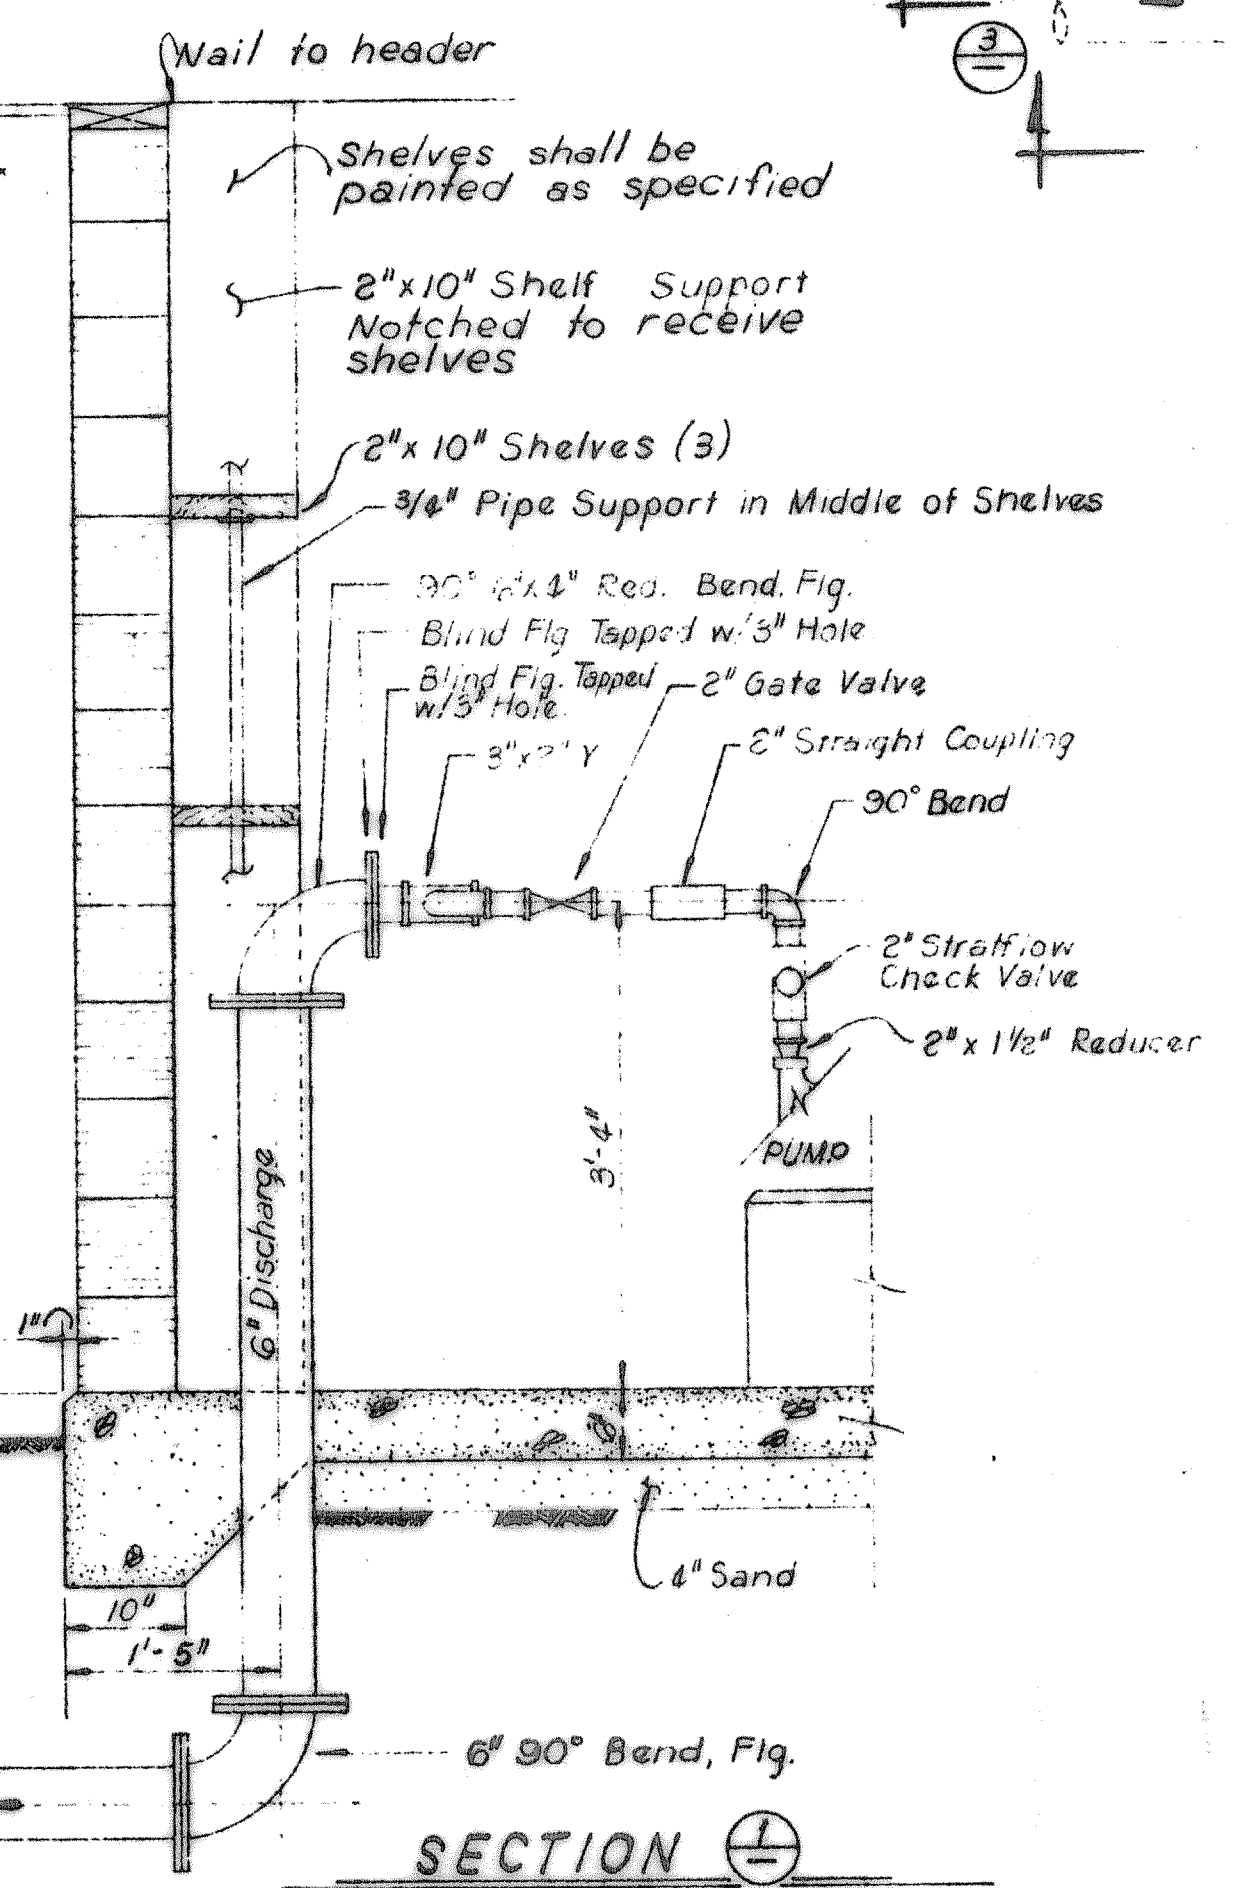 Nail to header
3
Shelves shall be
painted as specified
2"x10" Shelf Support
Notched to receive
shelves
2"x 10" Shelves (3)
3/4" Pipe Support in Middle of Shelves
90° 6"x4" Red. Bend, Flg.
Blind Flg Tapped w/3" Hole
Blind Flg. Tapped
w/3" Hole
2" Gate Valve
3"x2" Y
2" Straight Coupling
90° Bend
2" Stratflow
Check Valve
2" x 1½" Reducer
3'-4"
PUMP
6" Discharge
1"
4" Sand
10"
1'-5"
6" 90° Bend, Flg.
SECTION 1